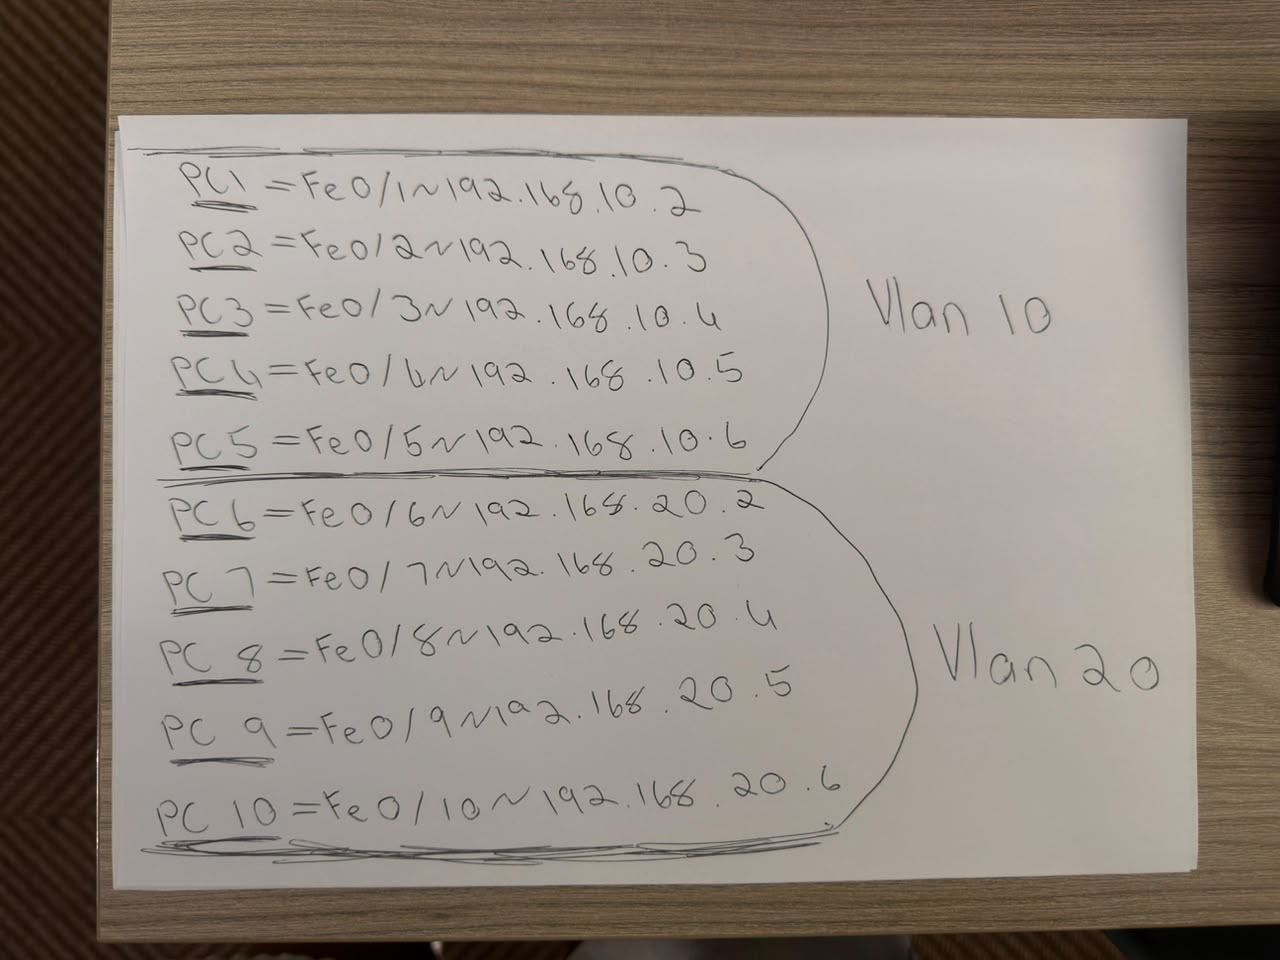 PC1 = Fe0/1~192.168.10.2
PC2 = Fe0/2~192.168.10.3
PC3 = Fe0/3~192.168.10.4
Vlan 10
PC4 = Fe0/4~192.168.10.5
PC5 = Fe0/5~192.168.10.6
PC6 = Fe0/6~192.168.20.2
PC7 = Fe0/7~192.168.20.3
PC 8 = Fe0/8~192.168.20.4
Vlan 20
PC 9 = Fe0/9~192.168.20.5
PC 10 = Fe0/10~192.168.20.6